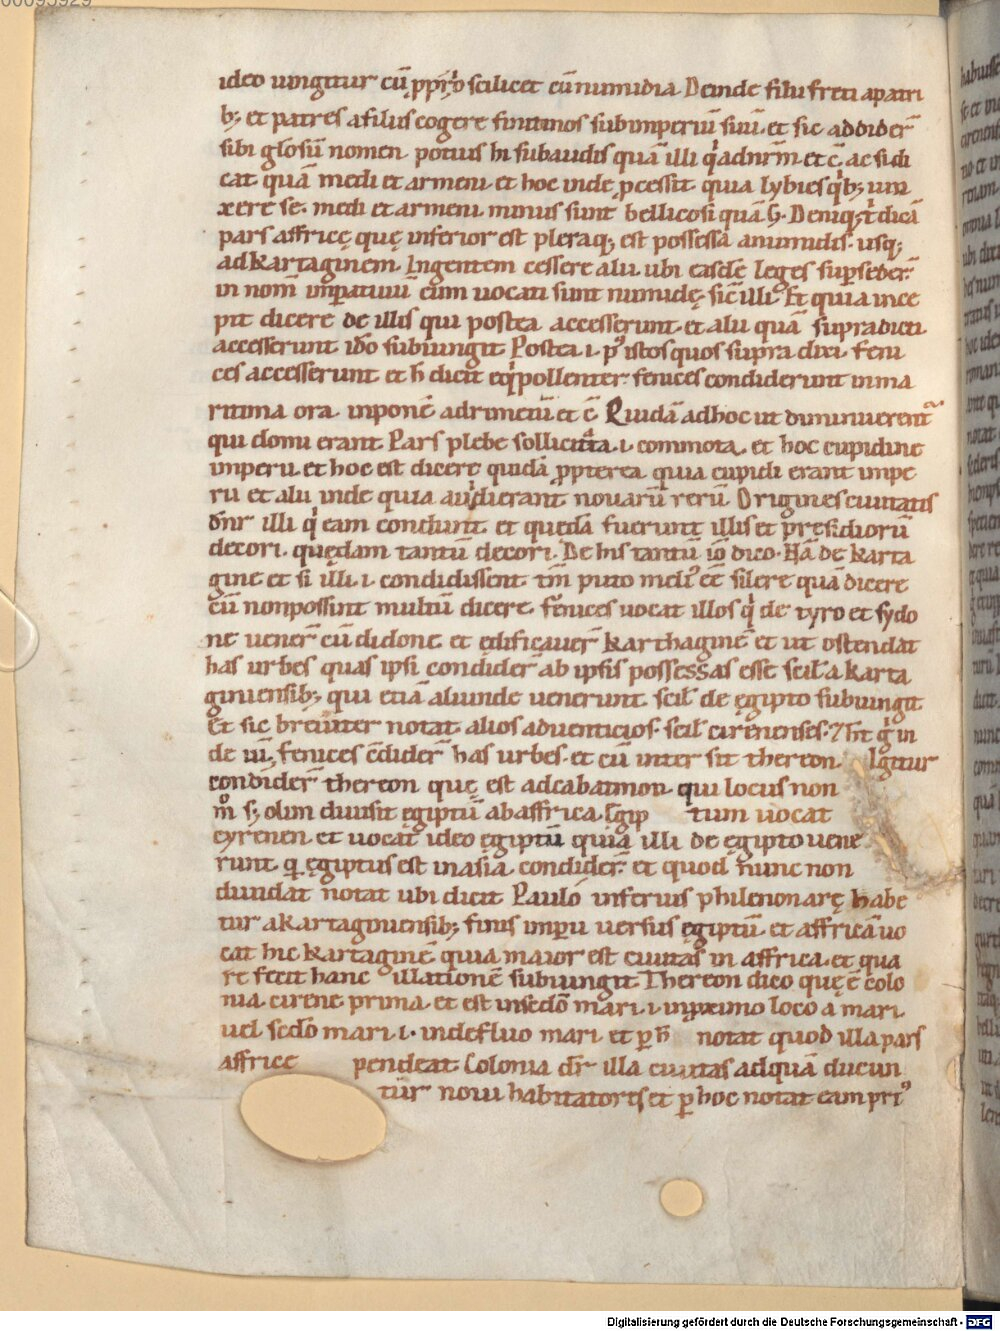 00095929
ideo iungitur cū ꝓprio scilicet cū numidia Deinde filii freti a patri
bꝫ et patres a filiis cogere finitimos sub imperiū suū et sic addiderꝫ
sibi glosū nomen potius hi subaudis quā illi qͥ ad nrm̄ et c̄ ac si di
cat quā medi et armeni et hoc inde ꝓcessit quia lybies qͥbꝫ iun
xere se medi et armeni minus sunt bellicosi quā
pars affricę quę inferior est pleraqꝫ est possessa a numidis usqꝫ
ad kartaginem Ingentem cessere alii ubi easdē leges
in nom̄ imꝑatiuū cum uocati sunt numidę sic illi Et quia ince
pit dicere de illis qui postea accesserunt et alii quā supradicti
accesserunt ido subiungit Postea i pꝰ istos quos supra dixi feni
ces accesserunt et h dicit eqͥpollenter fenices condiderunt in ma
ritima ora inponē et c̄ Quidā ad hoc ut diminuerent
qui domi erant Pars plebe sollicitata i commota et hoc cupidine
imperii et hoc est dicere quidā ꝓpterea quia cupidi erant impe
rii et alii inde quia auidi erant nouarū rerū Origines ciuitatis
dn̄r illi qͥ eam condunt et quedā fuerunt illis et pręsidiorū
decori quędam tantū decori De his tantū io dico Hā de karta
gine et si illi i condidissent tm̄ puto meliꝰ eē silere quā dicere
cū non possint multū dicere fenices uocat illos qͥ de tyro et sydo
ne uenerꝫ cū didone et edificauerꝫ karthaginē et ut ostendat
has urbes quas ipsi condider ab ipsis possessas esse scil a karta
giniensibꝫ qui etiā aliunde uenerunt scil de egipto subiungit
Et sic breuiter notat alios aduenticios scil cirenenses
fenices ꝯdiderꝫ has urbes et cū inter sit thereon Igitur
condiderꝫ thereon quę est ad cabatmon qui locus non
m̊ sꝫ olim diuisit egiptū ab affrica Egip tum uocat
cyrenen et uocat ideo egiptū quia illi de egipto uene
runt qͥ egiptus est in asia condiderꝫ et quod nunc non
diuidat notat ubi dicit Paulo inferius philenon arę habe
tur a kartaginensibꝫ finis imperii uersus egiptū et affricā uo
cat hic kartaginē quia maior est ciuitas in affrica et qua
re fecit hanc illationē subiungit Thereon dico quę ē colo
nia cirene prima et est in sedo mari i in ꝓximo loco a mari
uel sedo mari i indefluo mari et ꝑ h notat quod illa pars
affrice pendeat Colonia dr illa ciuitas ad quā ducun
tur noui habitatores et ꝑ hoc notat eam priꝰ
Digitalisierung gefördert durch die Deutsche Forschungsgemeinschaft - DFG